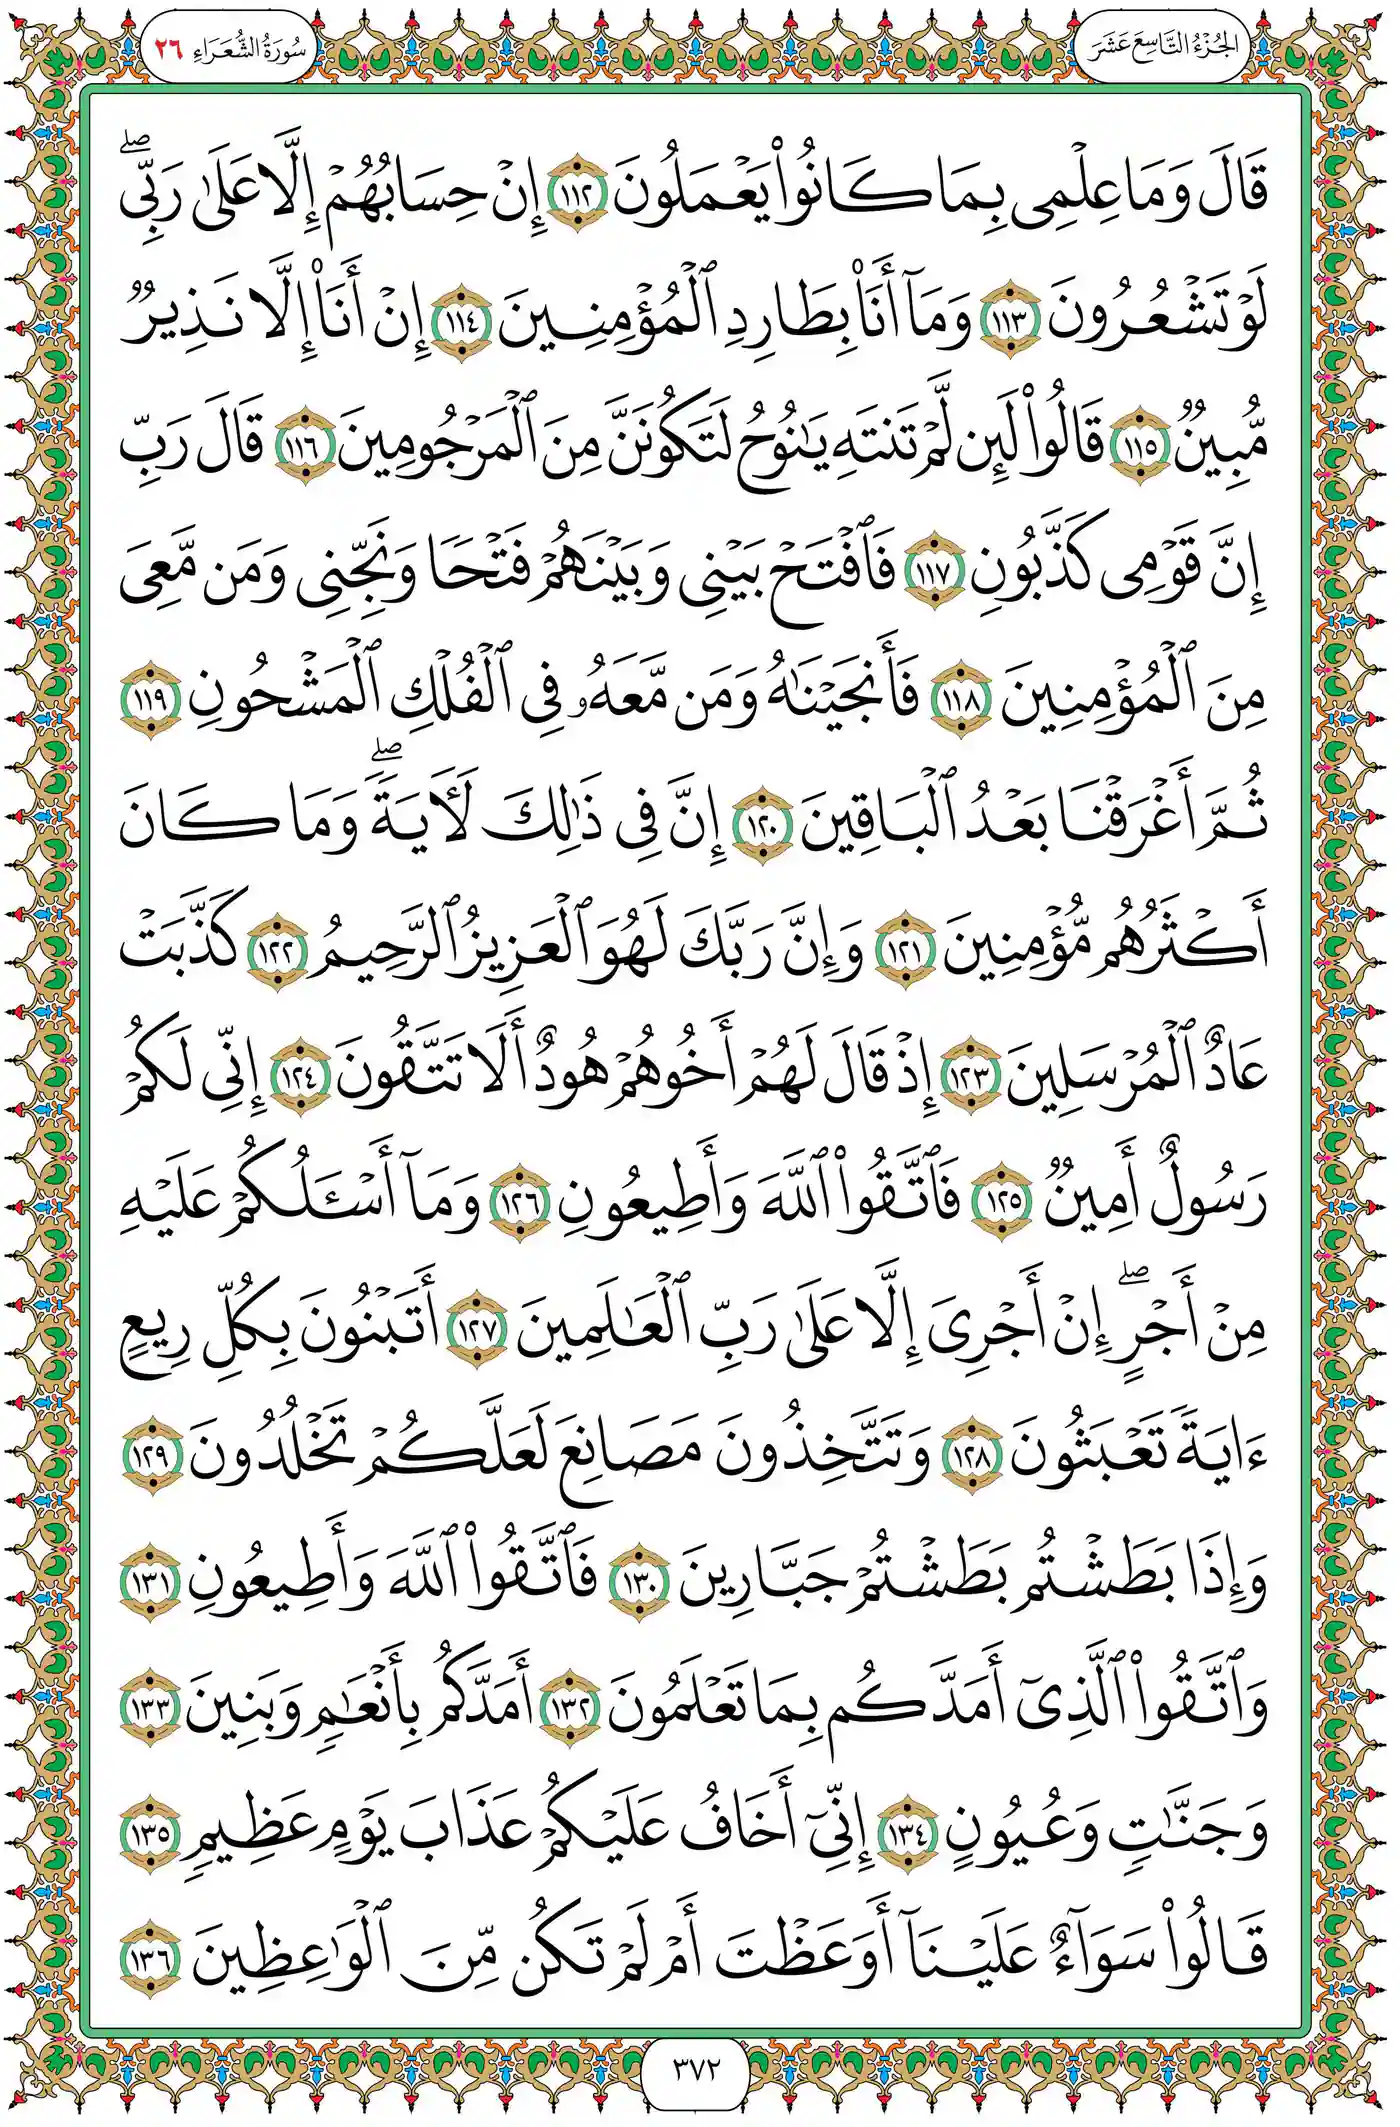 الجُزْءُ التَّاسِعَ عَشَرَ
سُورَةُ الشُّعَرَاءِ ٢٦
قَالَ وَمَا عِلْمِى بِمَا كَانُوا۟ يَعْمَلُونَ ١١٢ إِنْ حِسَابُهُمْ إِلَّا عَلَىٰ رَبِّى ۖ
لَوْ تَشْعُرُونَ ١١٣ وَمَآ أَنَا۠ بِطَارِدِ ٱلْمُؤْمِنِينَ ١١٤ إِنْ أَنَا۠ إِلَّا نَذِيرٌ
مُّبِينٌ ١١٥ قَالُوا۟ لَئِن لَّمْ تَنتَهِ يَـٰنُوحُ لَتَكُونَنَّ مِنَ ٱلْمَرْجُومِينَ ١١٦ قَالَ رَبِّ
إِنَّ قَوْمِى كَذَّبُونِ ١١٧ فَٱفْتَحْ بَيْنِى وَبَيْنَهُمْ فَتْحًا وَنَجِّنِى وَمَن مَّعِىَ
مِنَ ٱلْمُؤْمِنِينَ ١١٨ فَأَنجَيْنَـٰهُ وَمَن مَّعَهُۥ فِى ٱلْفُلْكِ ٱلْمَشْحُونِ ١١٩
ثُمَّ أَغْرَقْنَا بَعْدُ ٱلْبَاقِينَ ١٢٠ إِنَّ فِى ذَٰلِكَ لَـَٔايَةً ۖ وَمَا كَانَ
أَكْثَرُهُم مُّؤْمِنِينَ ١٢١ وَإِنَّ رَبَّكَ لَهُوَ ٱلْعَزِيزُ ٱلرَّحِيمُ ١٢٢ كَذَّبَتْ
عَادٌ ٱلْمُرْسَلِينَ ١٢٣ إِذْ قَالَ لَهُمْ أَخُوهُمْ هُودٌ أَلَا تَتَّقُونَ ١٢٤ إِنِّى لَكُمْ
رَسُولٌ أَمِينٌ ١٢٥ فَٱتَّقُوا۟ ٱللَّهَ وَأَطِيعُونِ ١٢٦ وَمَآ أَسْـَٔلُكُمْ عَلَيْهِ
مِنْ أَجْرٍ ۖ إِنْ أَجْرِىَ إِلَّا عَلَىٰ رَبِّ ٱلْعَـٰلَمِينَ ١٢٧ أَتَبْنُونَ بِكُلِّ رِيعٍ
ءَايَةً تَعْبَثُونَ ١٢٨ وَتَتَّخِذُونَ مَصَانِعَ لَعَلَّكُمْ تَخْلُدُونَ ١٢٩
وَإِذَا بَطَشْتُم بَطَشْتُمْ جَبَّارِينَ ١٣٠ فَٱتَّقُوا۟ ٱللَّهَ وَأَطِيعُونِ ١٣١
وَٱتَّقُوا۟ ٱلَّذِىٓ أَمَدَّكُم بِمَا تَعْلَمُونَ ١٣٢ أَمَدَّكُم بِأَنْعَـٰمٍ وَبَنِينَ ١٣٣
وَجَنَّـٰتٍ وَعُيُونٍ ١٣٤ إِنِّىٓ أَخَافُ عَلَيْكُمْ عَذَابَ يَوْمٍ عَظِيمٍ ١٣٥
قَالُوا۟ سَوَآءٌ عَلَيْنَآ أَوَعَظْتَ أَمْ لَمْ تَكُن مِّنَ ٱلْوَٰعِظِينَ ١٣٦
٣٧٢